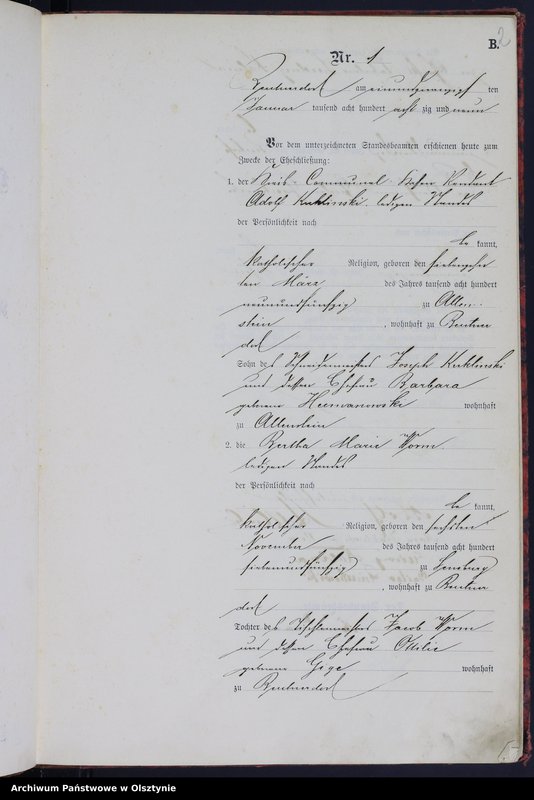 B. 2
Nr. 1
am einundzwanzig ten
Januar tausend acht hundert acht zig und neun
Vor dem unterzeichneten Standesbeamten erschienen heute zum
Zwecke der Eheschließung:
1. der Kreis-Communal Rendant
Adolf Kuklinski, ledigen Standes
der Persönlichkeit nach
be kannt,
katholischer Religion, geboren den siebenzehn
ten März des Jahres tausend acht hundert
neunundfünfzig zu Allen-
stein, wohnhaft zu
dorf
Sohn des Schneidermeisters Joseph Kuklinski
und dessen Ehefrau Barbara
geborene wohnhaft
zu Allenstein
2. die Bertha Marie Worm,
ledigen Standes
der Persönlichkeit nach
be kannt,
katholischer Religion, geboren den sechsten
November des Jahres tausend acht hundert
siebenundfünfzig zu Sensburg
, wohnhaft zu
dorf
Tochter des Tischlermeisters Jacob Worm
und dessen Ehefrau Ottilie
geborene wohnhaft
zu
Archiwum Państwowe w Olsztynie